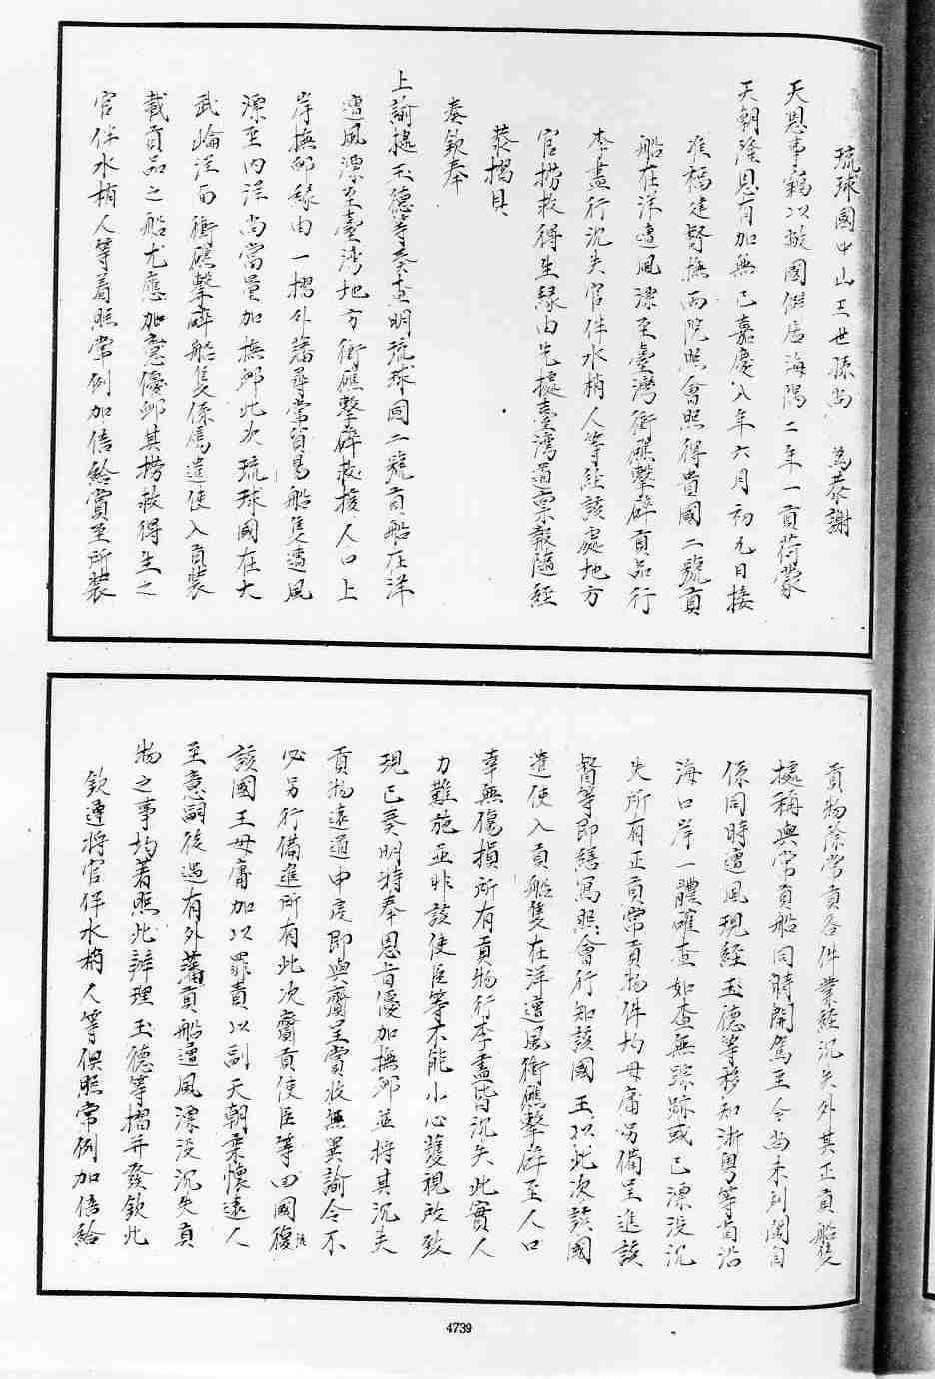 琉球國中山王世孫尚　為恭謝
天恩事竊以敝國僻居海隅二年一貢荷蒙
天朝隆恩有加無已嘉慶八年六月初九日接
准福建督撫兩院照會照得貴國二號貢
船在洋遭風漂至臺灣衝礁擊碎貢品行
李盡行沉失官伴水梢人等經該處地方
官撈救得生緣由先據臺灣道稟報隨經
恭摺具
奏欽奉
上諭據玉德等奏查明琉球國二號貢船在洋
遭風漂至臺灣地方衝礁擊碎救援人口上
岸撫卹緣由一摺外藩尋常貿易船隻遭風
漂至內洋尚當量加撫卹此次琉球國在大
武崙洋面衝礁擊碎船隻係屬遣使入貢裝
載貢品之船尤應加意優卹其撈救得生之
官伴水梢人等着照常例加倍給賞至所裝
貢物除常貢各件業經沉失外其正貢船隻
據稱與常貢船同時開駕至今尚未到閩自
係同時遭風現經玉德等移知浙粵等省沿
海口岸一體確查如查無踪跡或已漂沒沉
失所有正貢常貢物件均毋庸另備呈進該
督等即繕寫照會行知該國王以此次該國
遣使入貢船隻在洋遭風衝礁擊碎至人口
幸無傷損所有貢物行李盡皆沉失此實人
力難施並非該使臣等不能小心護視所致
現已奏明特奉恩旨優加撫卹並將其沉失
貢物遠適申虔即與齎呈賞收無異諭令不
必另行備進所有此次齎貢使臣等回國後
該國王毋庸加以罪責以副天朝柔懷遠人
至意嗣後遇有外藩貢船遭風漂沒沉失貢
物之事均著照此辦理玉德等摺并發欽此
欽遵將官伴水梢人等俱照常例加倍給
4739